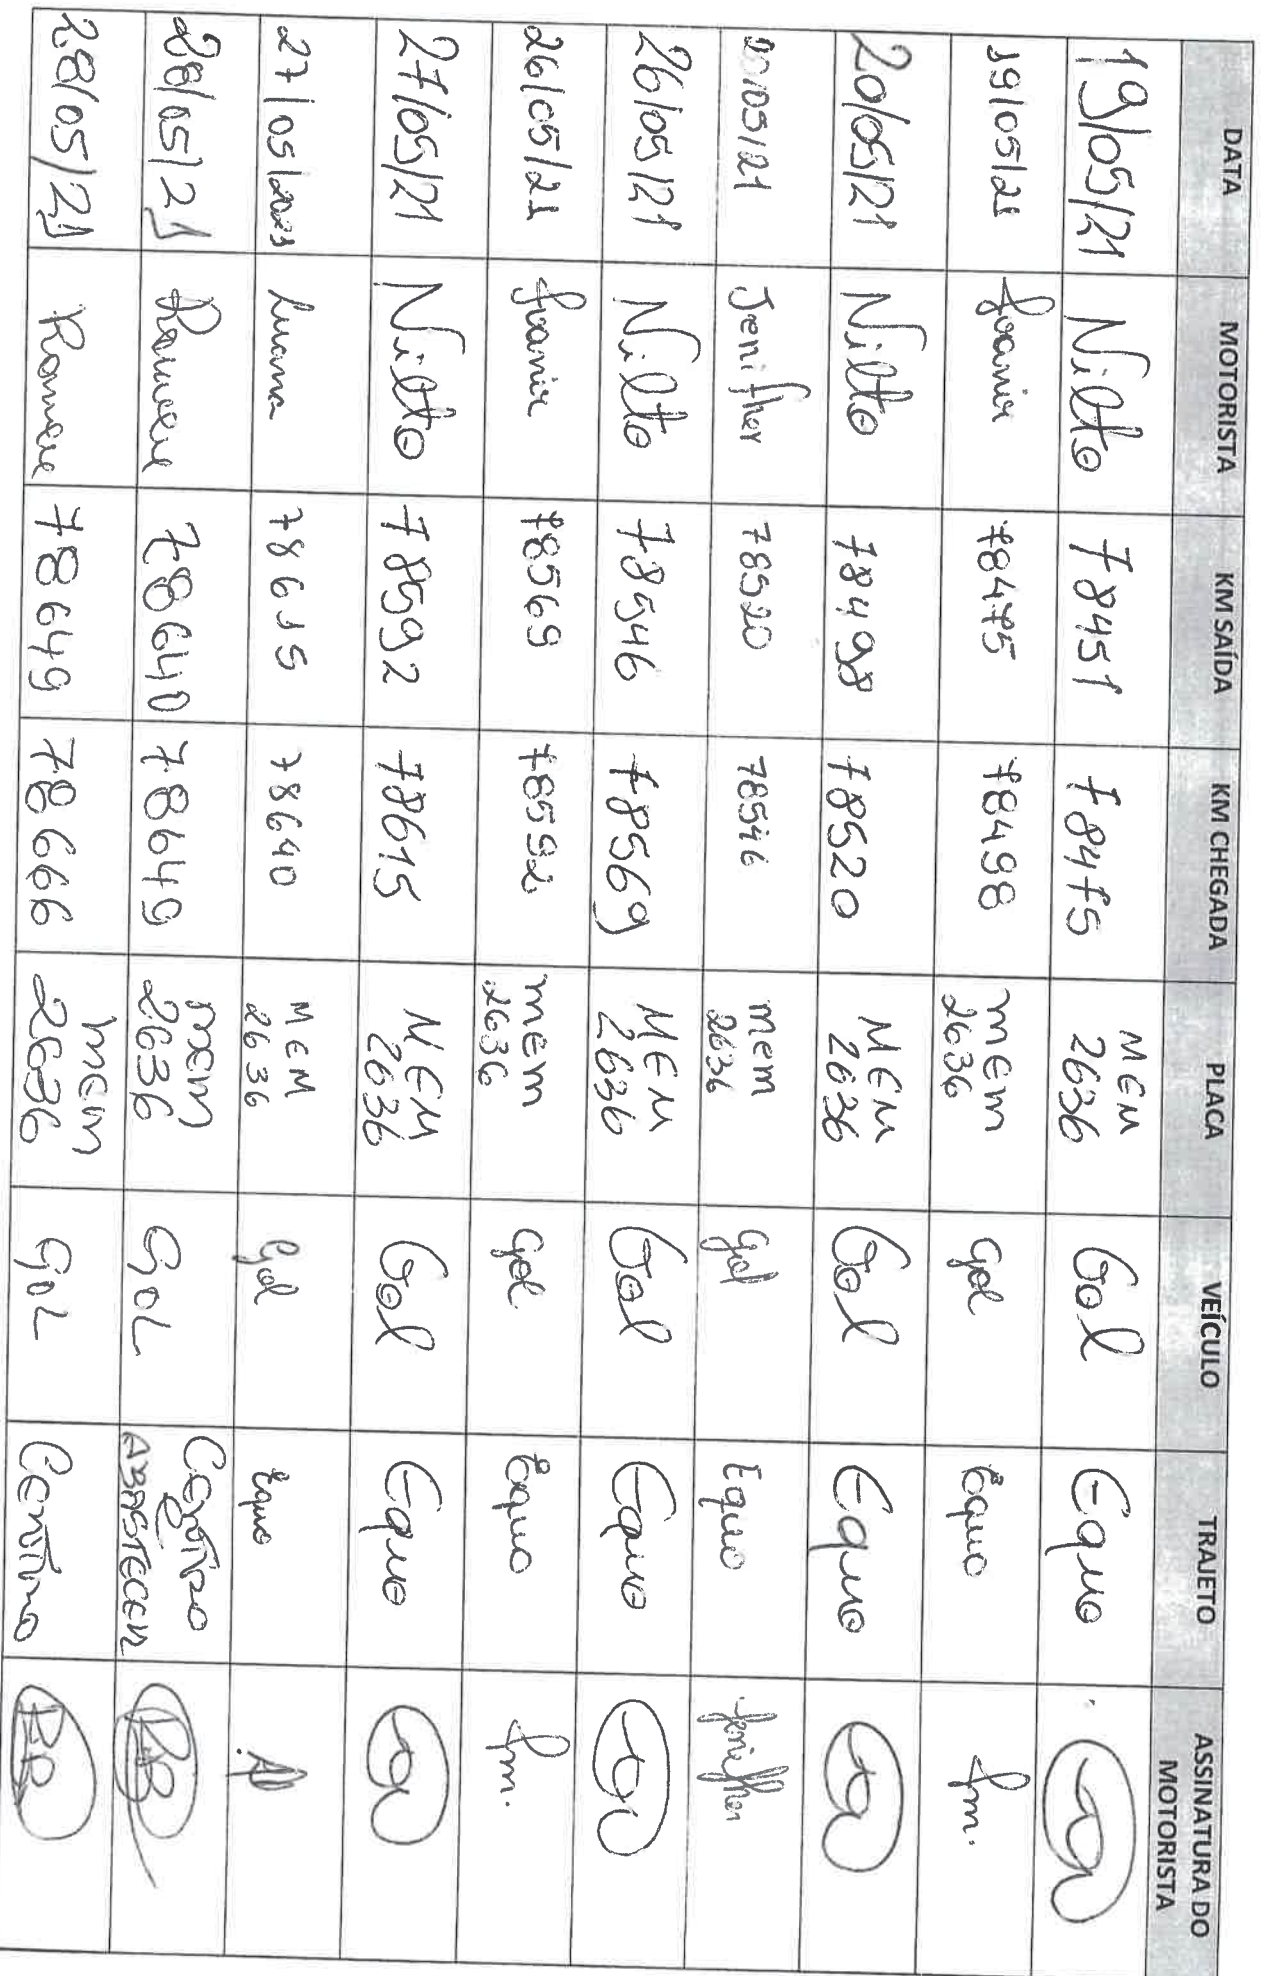 DATA MOTORISTA KM SAÍDA KM CHEGADA PLACA VEÍCULO TRAJETO ASSINATURA DO MOTORISTA
19/05/21 Nilto 78451 78475 MEM 2636 Gol Equo
19/05/21 Joanir 78475 78498 mem 2636 Gol Equo Jm.
20/05/21 Nilto 78498 78520 MEM 2636 Gol Equo
20/05/21 Jenifher 78520 78546 mem 2636 Gol Equo Jenifher
26/05/21 Nilto 78546 78569 MEM 2636 Gol Equo
26/05/21 Joanir 78569 78592 mem 2636 Gol Equo Jm.
27/05/21 Nilto 78592 78615 MEM 2636 Gol Equo
27/05/2021 Luana 78615 78640 MEM 2636 Gol Equo
28/05/21 78640 78649 mem 2636 GOL Centro ABASTECER
28/05/21 78649 78666 mem 2636 GOL Centro